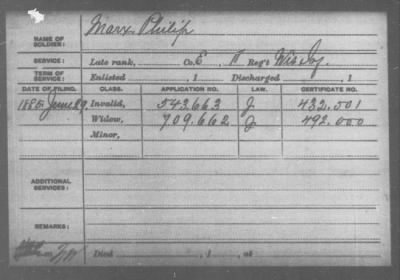 NAME OF SOLDIER: Marx Philip
SERVICE: Late rank, Co. E, Reg't Wis Inf
TERM OF SERVICE: Enlisted , 1 Discharged , 1
DATE OF FILING. CLASS. APPLICATION NO. LAW. CERTIFICATE NO.
1885 June 29 Invalid, 543.663 J. 432.501
Widow, 709.662 J 492.000
Minor,
ADDITIONAL SERVICES:
REMARKS:
Died , 1 , at